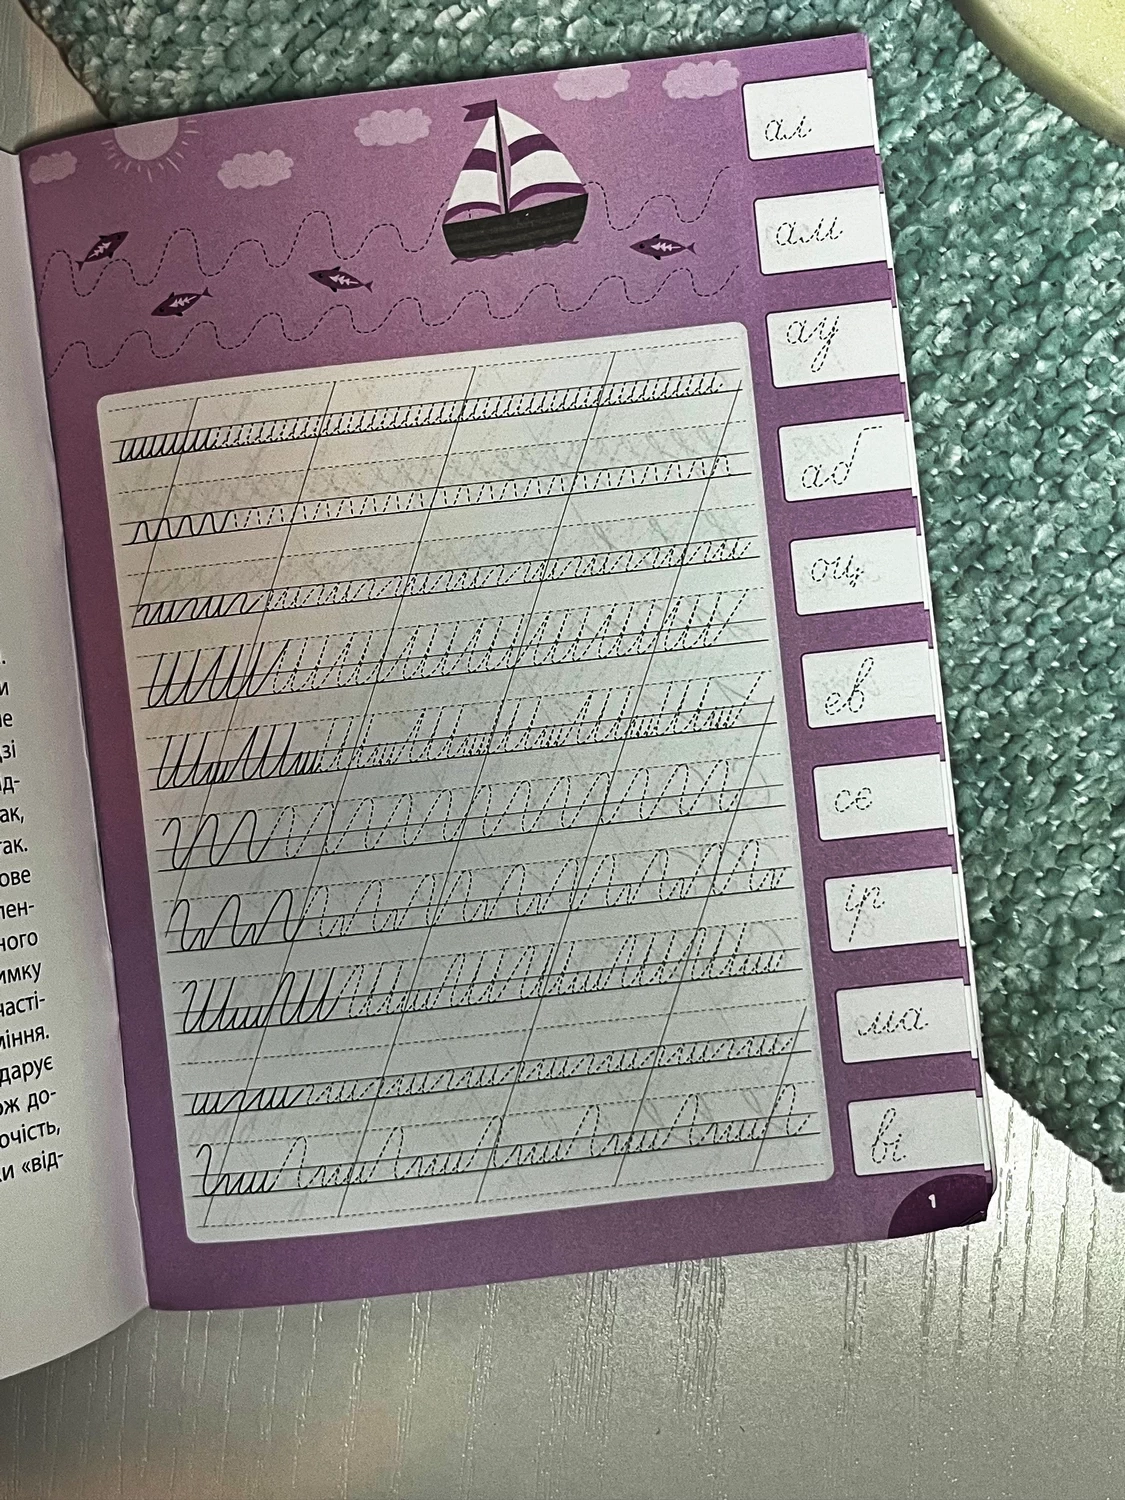 и
не
дзі
ід-
ак,
так.
ове
лен-
ного
имку
часті-
міння.
дарує
ож до-
очість,
ки «від-
ал
ам
ау
аб
оц
ев
се
ір
ма
ві
1